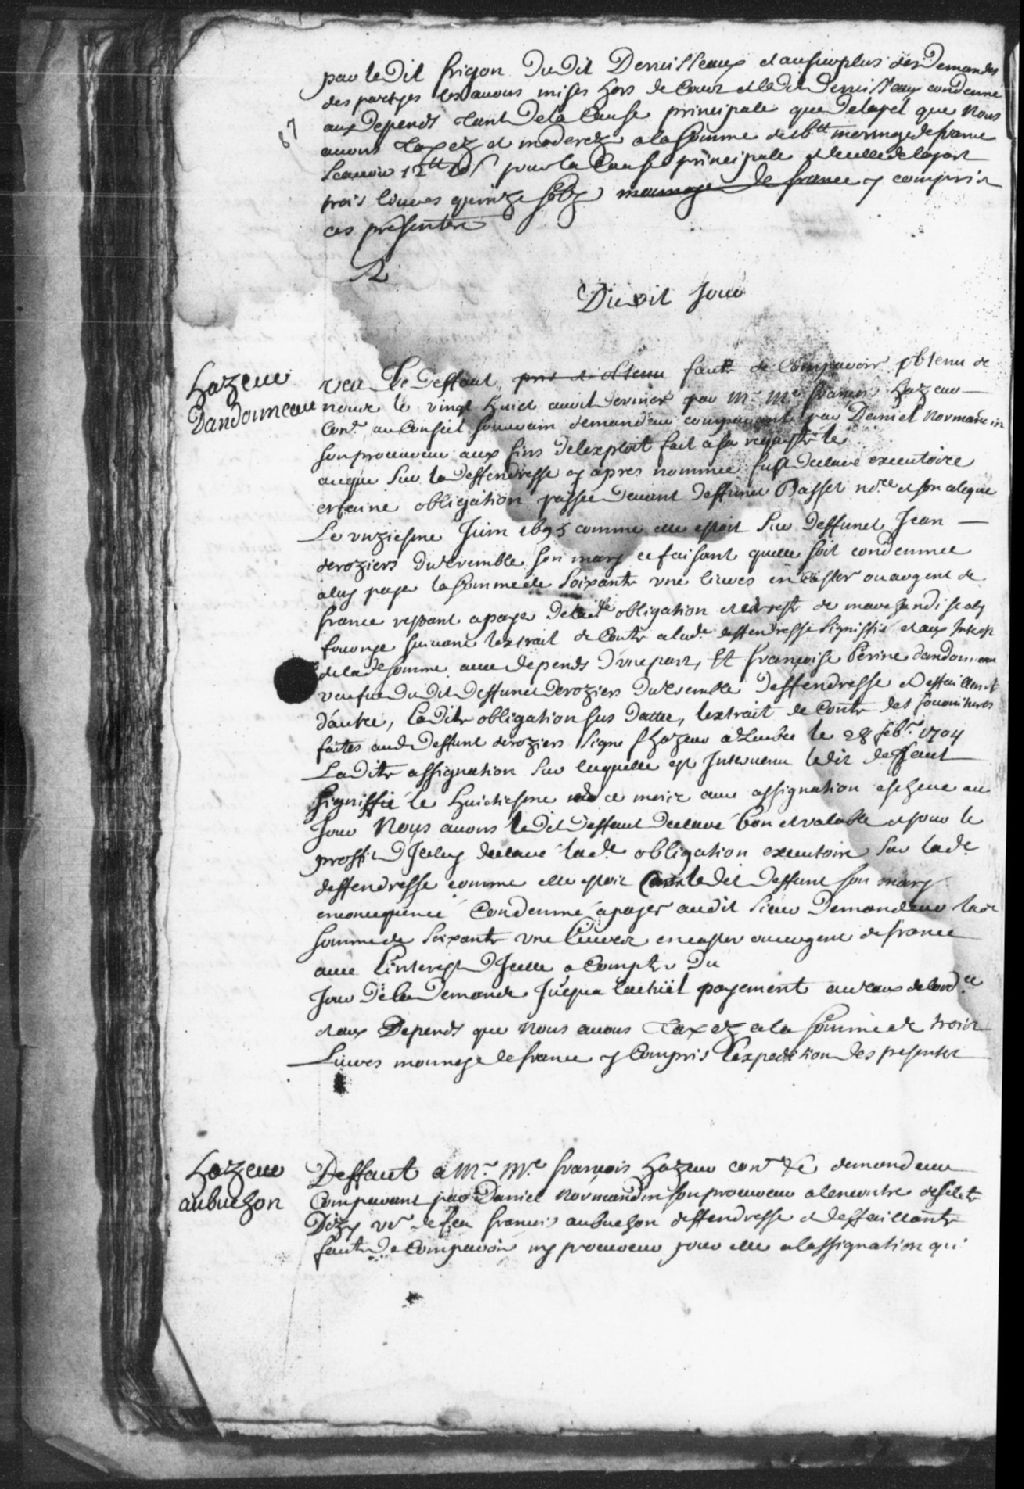 par le dit frigon du dit Deruisseaux et au surplus des Demandes
des partyes les avons mises hors de Cour et le dit Deruisseaux condemné
aux depends tant de la Cause principale que delapel que nous
67
avons taxez et moderez a la somme de 16tt monnoye de france
scavoir 12tt pour la Cause principale et celle delapel
trois livres quinze sols monnoye de france y compris
ces presentes
Du dit Jour
Hazeur
Dandonneau
veu Le deffaut pris et obtenu faute de Comparoir obtenu de
nous le vingt huict avril dernier par Mr Me francois Hazeur
Conr au Conseil souverain demandeur comparant par Daniel normandin
son procureur aux fins de lexploit fait a sa requeste le
sur la deffendresse cy apres nommée fust declaré executoire
certaine obligation passée devant deffunct Basset nore et son colegue
Le unziesme Juin 1695 comme elle estoit sur deffunct Jean
deroziers dutremble son mary ce faisant quelle soit condemnée
a luy payer la somme de soixante une livres en castor ou argent de
france restant a payer de lade obligation et le reste de marchandises
suivant lextrait de Conte a lade deffendresse signiffié et aux Interest
de lade somme avec depends d'une part, Et françoise Perine dandonneau
veufve du dit deffunct deroziers dutremble deffendresse et deffaillante
d'autre, Ladite obligation sus dattée, lextrait de Conte des fournitures
faites aud deffunt deroziers signé f hazeur a quebec le 28 febr. 1704
Ladite assignation sur laquelle est Intervenu ledit deffaut
signiffié le huictiesme de ce mois avec assignation escheue au
Jour Nous avons le dit deffaut declaré bon et valable et pour le
proffit Diceluy declaré lade obligation executoire sur lade
deffendresse comme elle estoit contre le dit deffunt son mary
en consequence Condemné a payer au dit sieur Demandeur lade
somme de soixante une livres en castor ou argent de france
avec l'interest D'Icelle a Compter du
Jour de la Demande Jusqua lactuel payement au taux de lordce
et aux Depends que nous avons Taxez a la somme de trois
Livres monnoye de france y Compris l'expedition des presentes
Hazeur
aubuchon
Deffaut a Mr Me francois Hazeur conr &c demandeur
Comparant par Daniel normandin son procureur alencontre de
Dizy vve de feu francois aubuchon deffendresse et deffaillante
faute de Comparoir ny procureur pour elle a lassignation qui